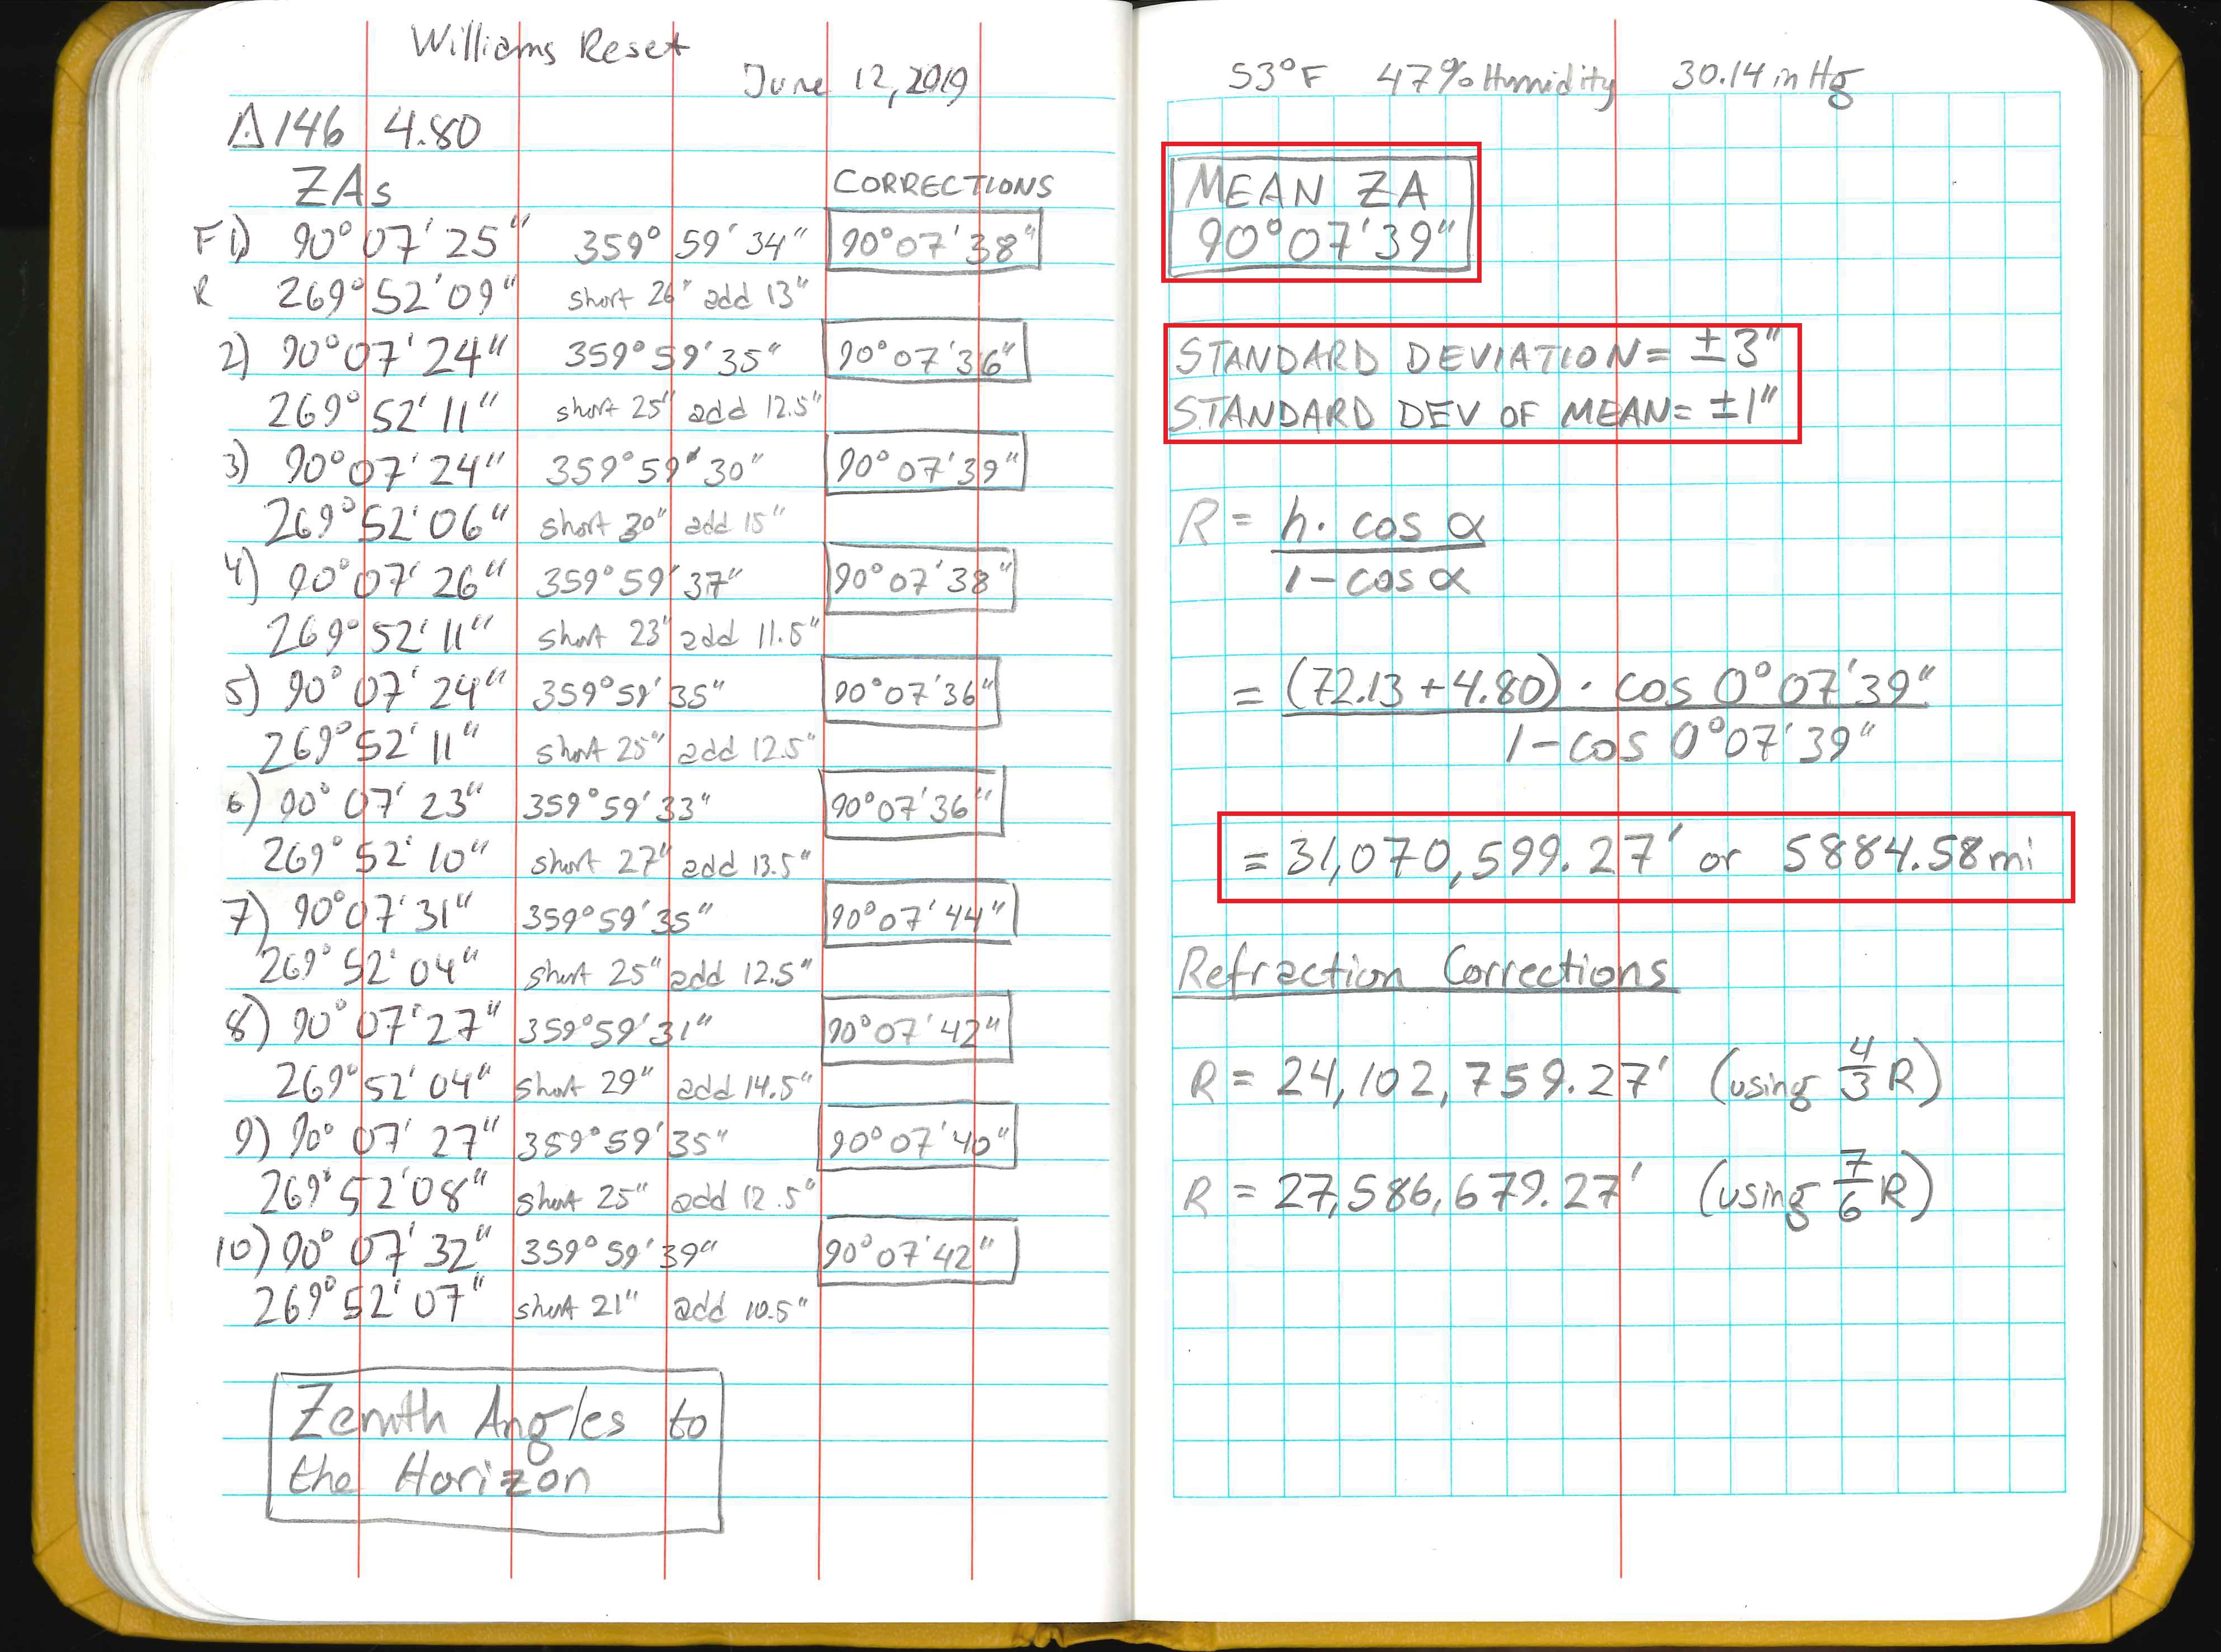 Williams Reset
June 12, 2019
△146 4.80
ZAs CORRECTIONS
F 1) 90° 07' 25" 359° 59' 34" 90° 07' 38"
R 269° 52' 09" short 26" add 13"
2) 90° 07' 24" 359° 59' 35" 90° 07' 36"
269° 52' 11" short 25" add 12.5"
3) 90° 07' 24" 359° 59' 30" 90° 07' 39"
269° 52' 06" short 30" add 15"
4) 90° 07' 26" 359° 59' 37" 90° 07' 38"
269° 52' 11" short 23" add 11.5"
5) 90° 07' 24" 359° 59' 35" 90° 07' 36"
269° 52' 11" short 25" add 12.5"
6) 90° 07' 23" 359° 59' 33" 90° 07' 36"
269° 52' 10" short 27" add 13.5"
7) 90° 07' 31" 359° 59' 35" 90° 07' 44"
269° 52' 04" short 25" add 12.5"
8) 90° 07' 27" 359° 59' 31" 90° 07' 42"
269° 52' 04" short 29" add 14.5"
9) 90° 07' 27" 359° 59' 35" 90° 07' 40"
269° 52' 08" short 25" add 12.5"
10) 90° 07' 32" 359° 59' 39" 90° 07' 42"
269° 52' 07" short 21" add 10.5"
Zenith Angles to
the Horizon
53°F 47% Humidity 30.14 in Hg
MEAN ZA
90° 07' 39"
STANDARD DEVIATION = ±3"
STANDARD DEV OF MEAN = ±1"
R = h · cos α
1 - cos α
= (72.13 + 4.80) · cos 0° 07' 39"
1 - cos 0° 07' 39"
= 31,070,599.27' or 5884.58 mi
Refraction Corrections
R = 24,102,759.27' (using 4/3 R)
R = 27,586,679.27' (using 7/6 R)